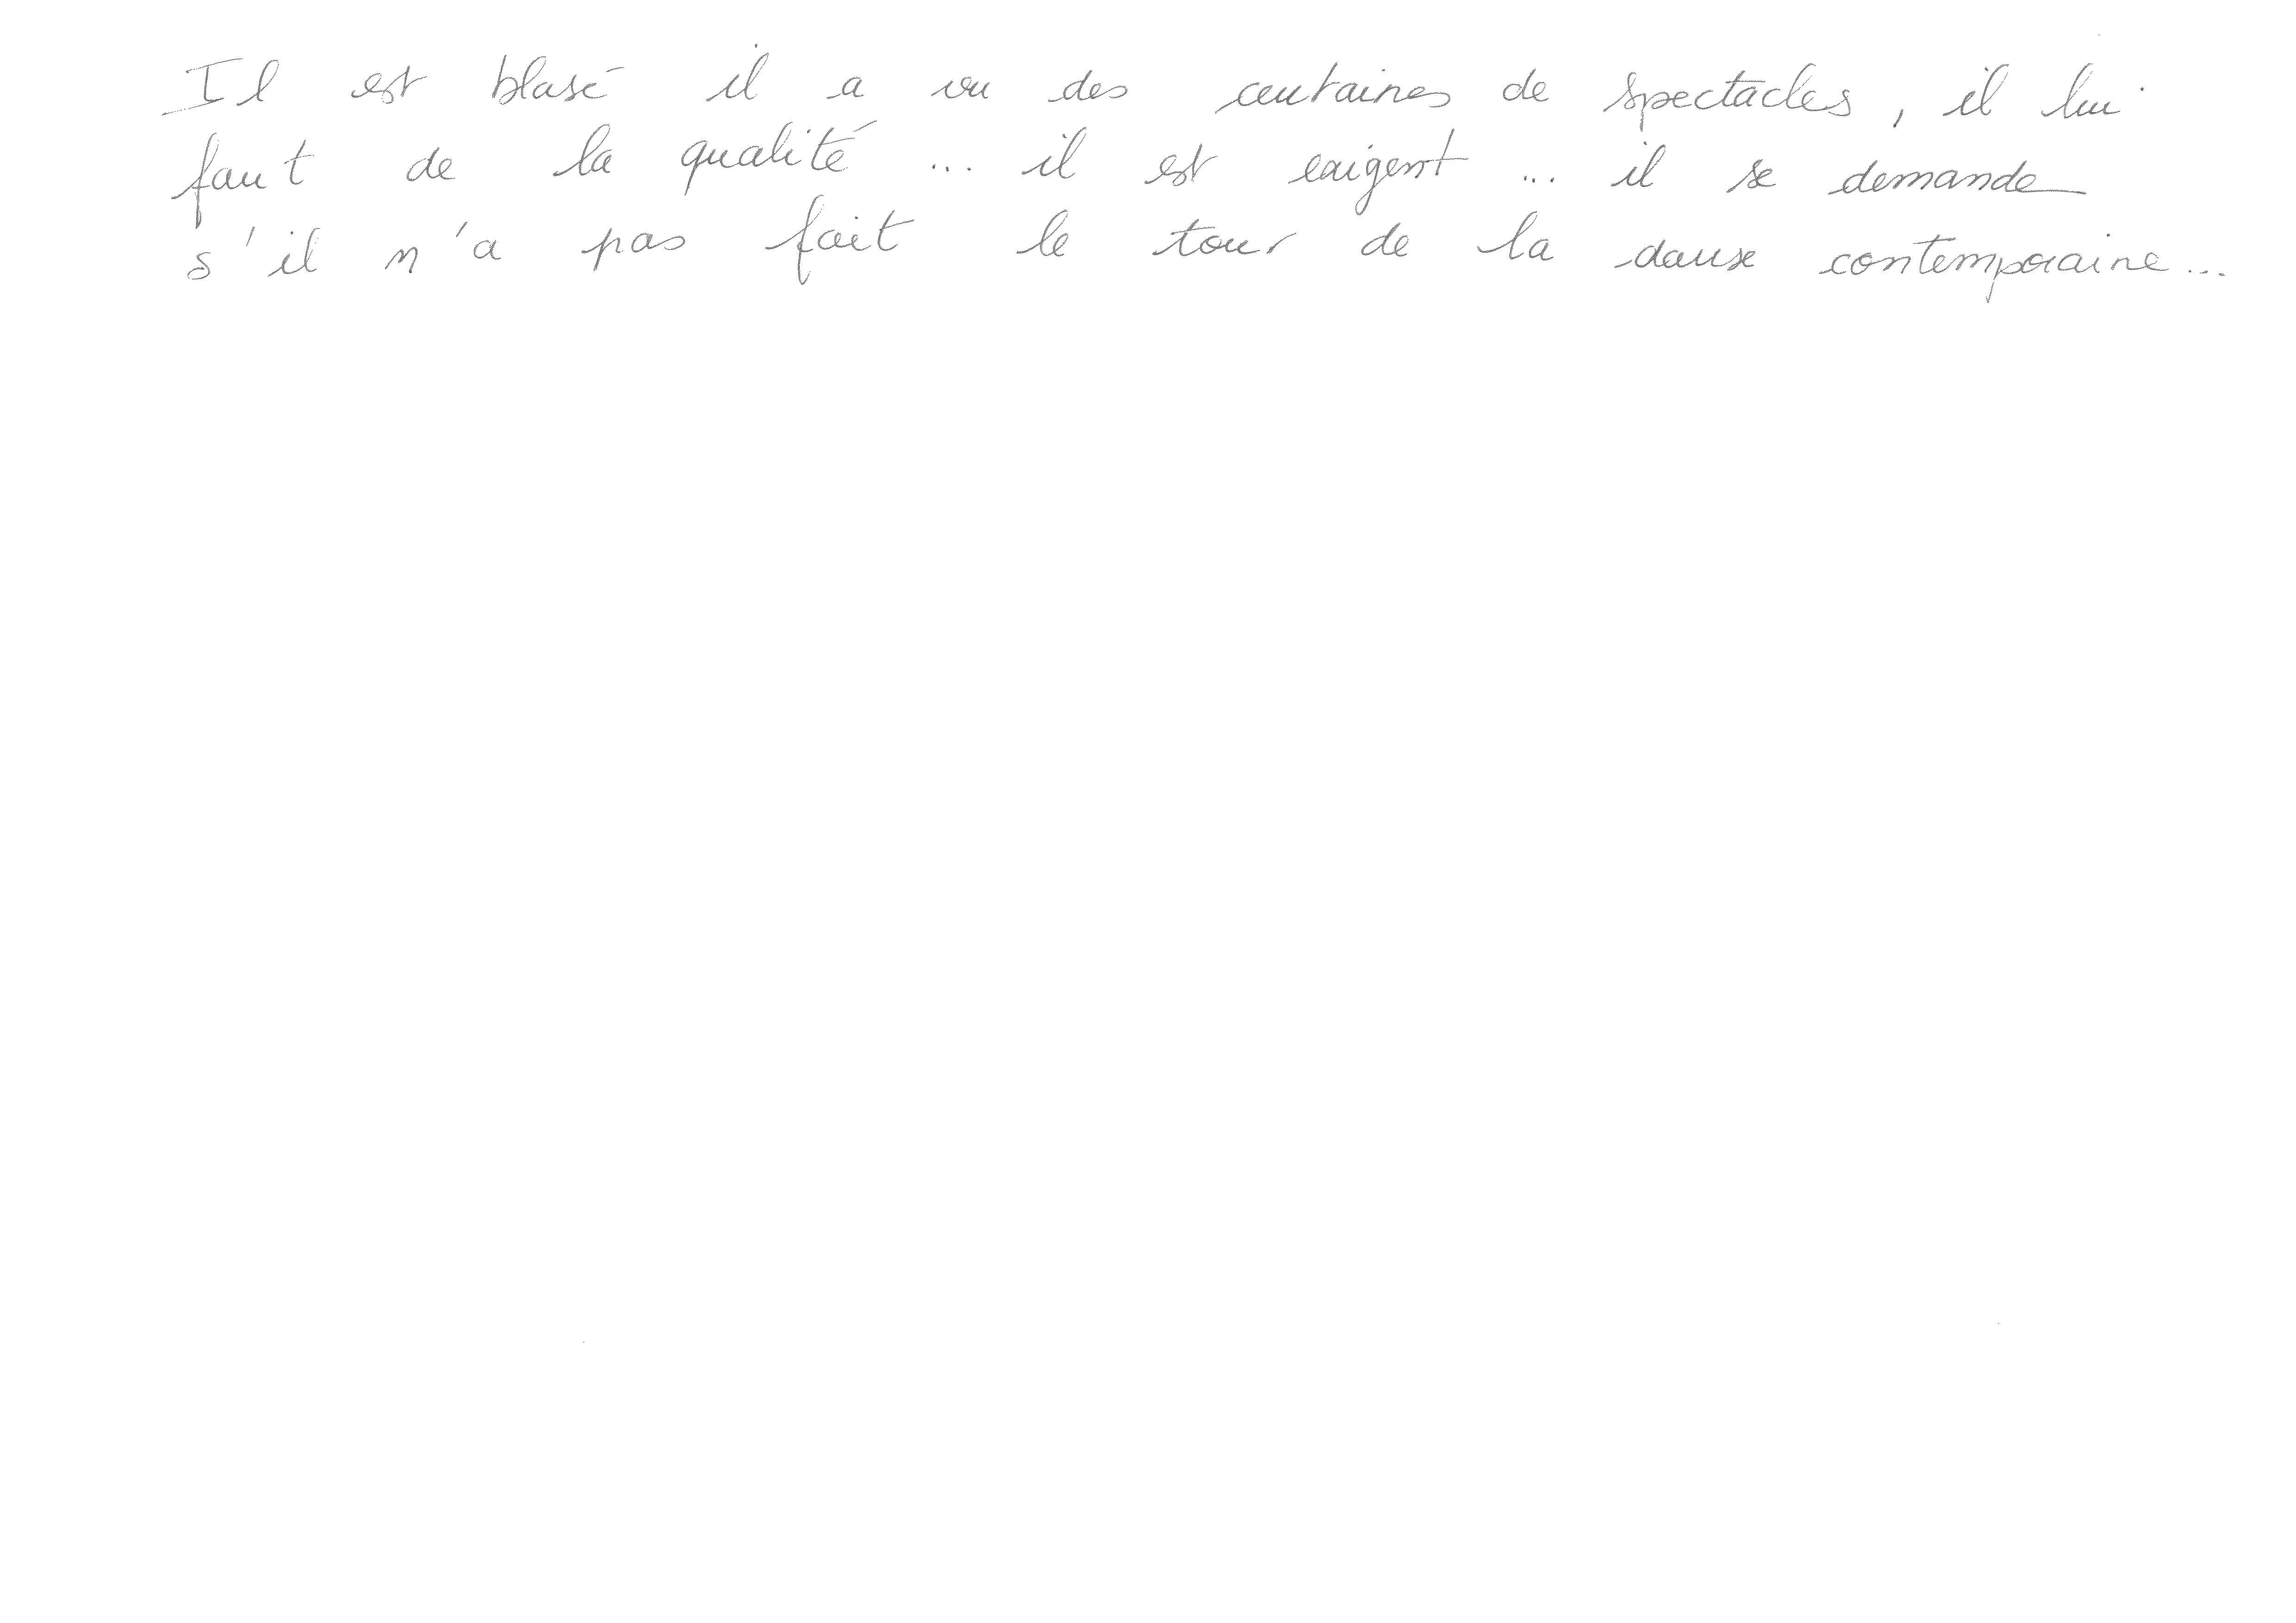 Il est blasé il a vu des centaines de spectacles, il lui
faut de la qualité ... il est exigent ... il se demande
s'il n'a pas fait le tour de la danse contemporaine...